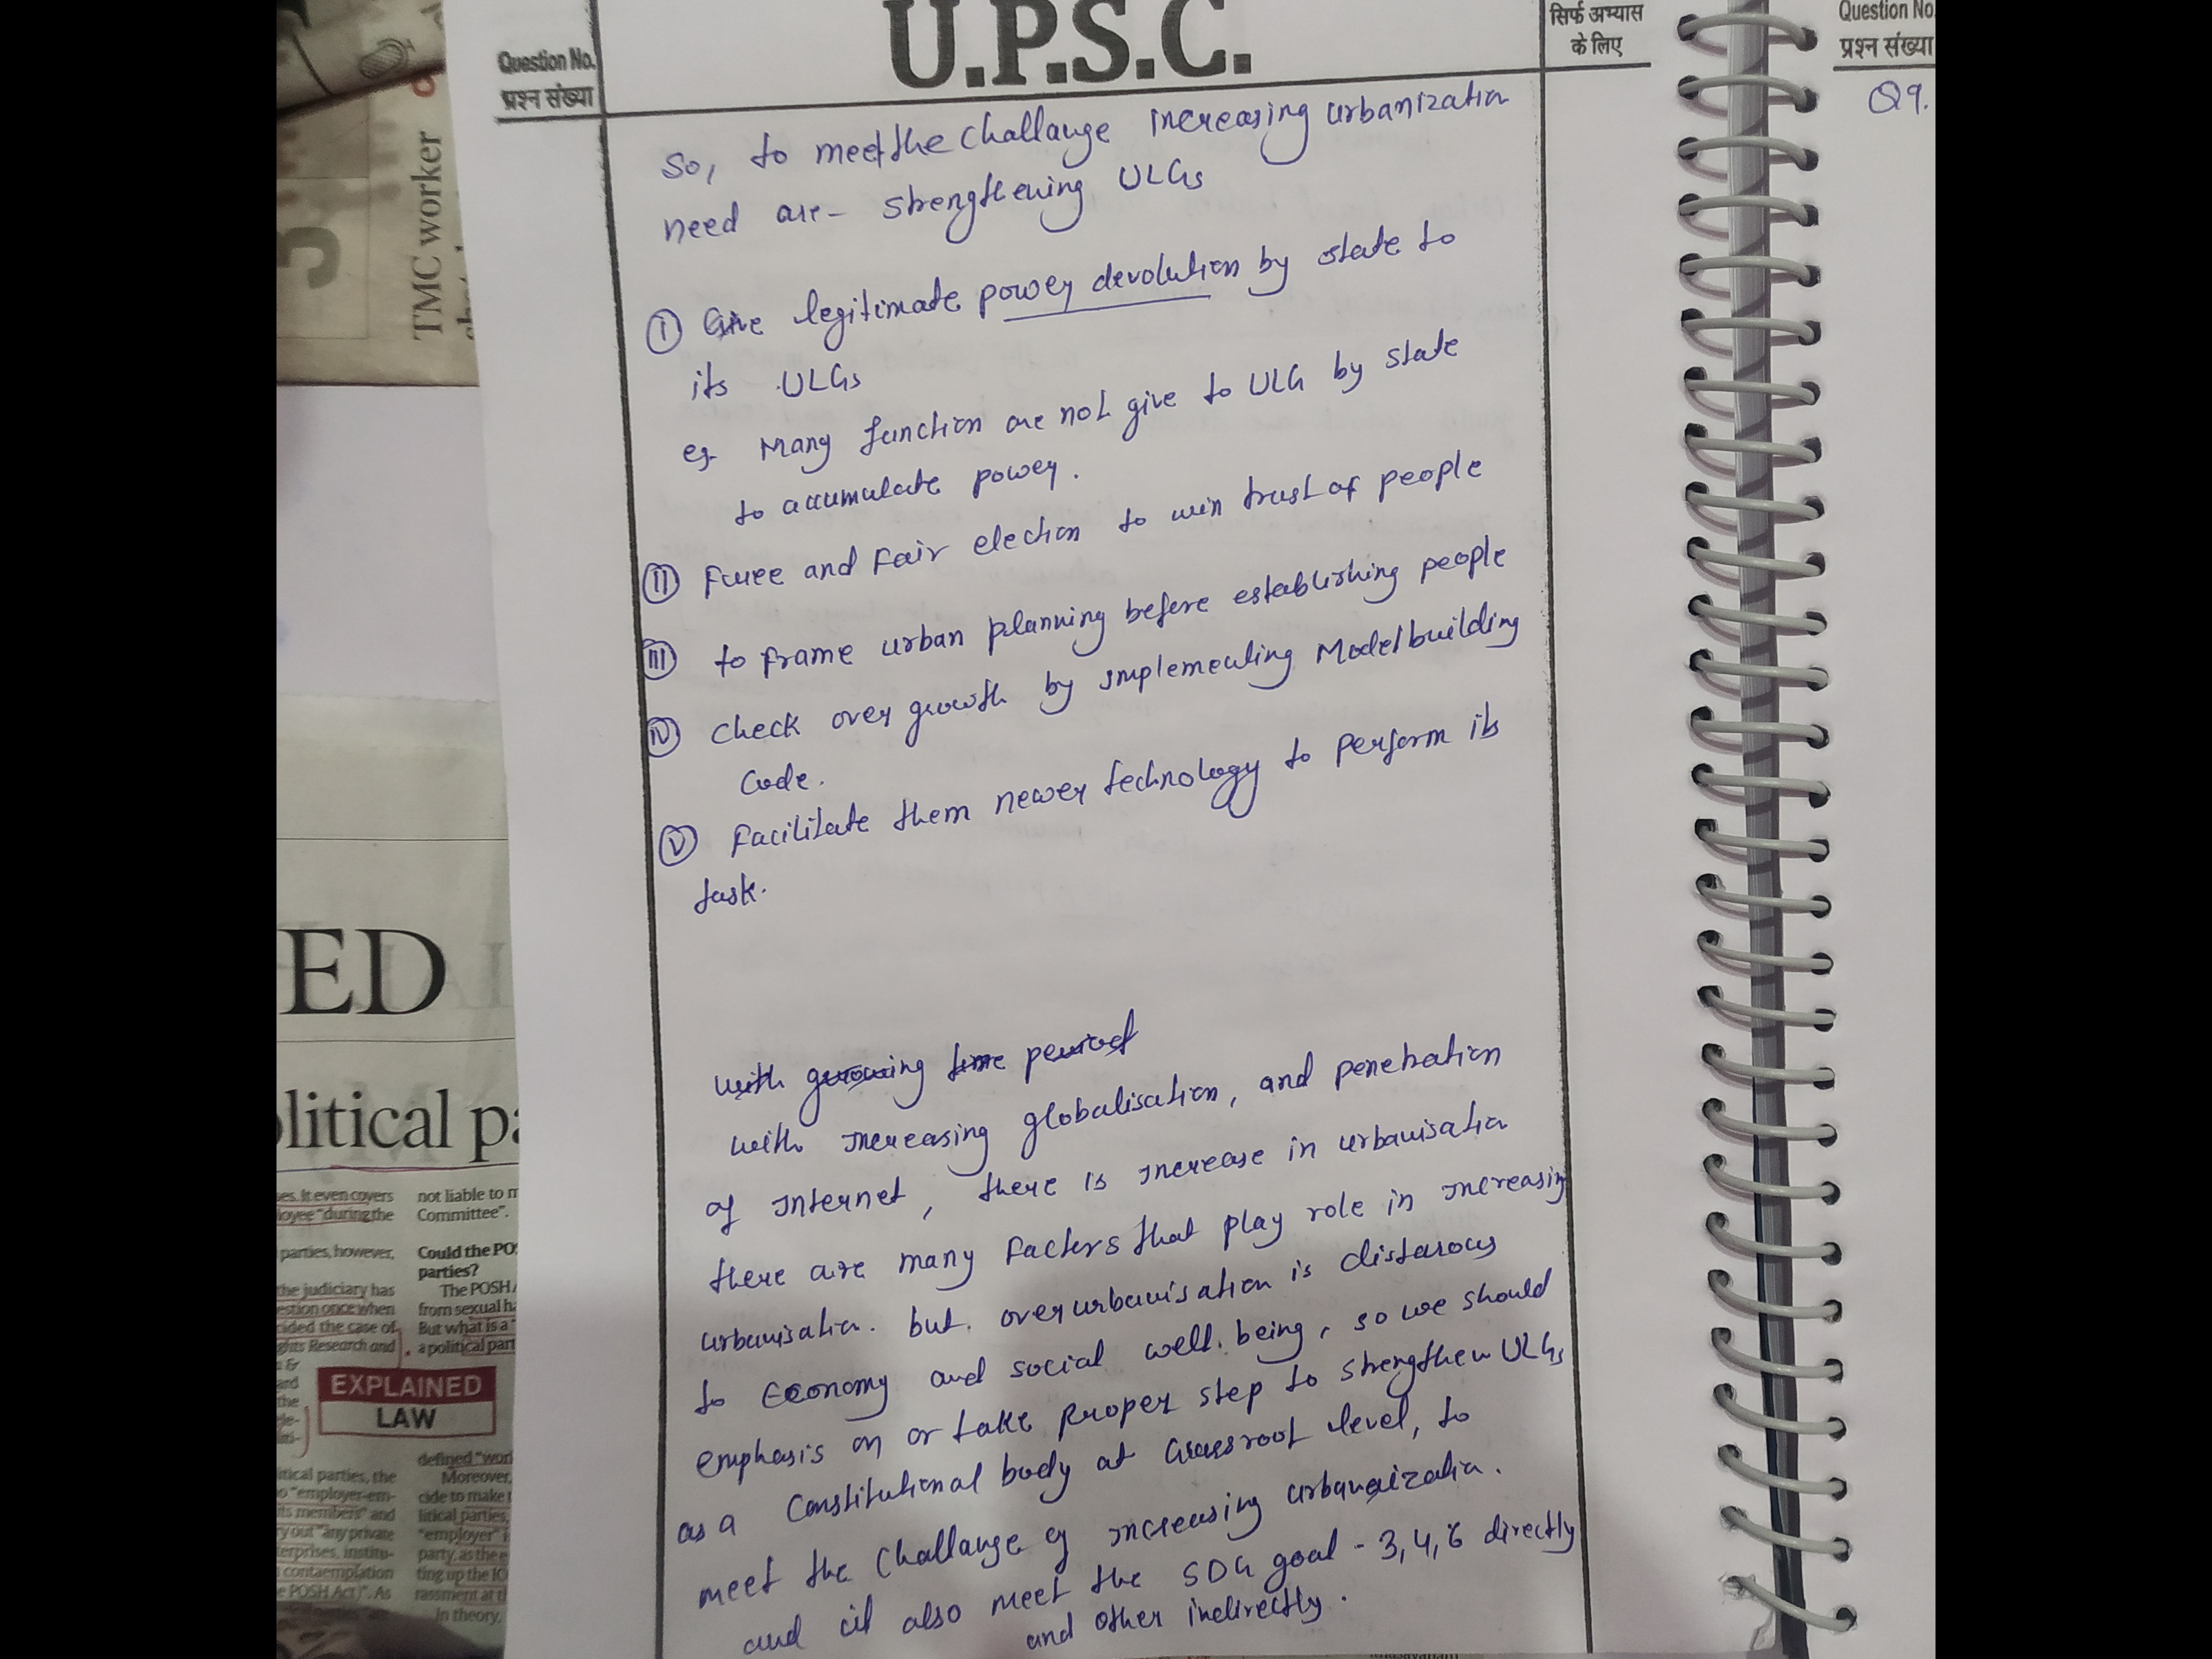 U.P.S.C.
Question No.
प्रश्न संख्या
सिर्फ अभ्यास
के लिए
So, to meet the challange increasing urbanization
need are - strengthening ULGs
(I) Give legitimate power devolution by state to
its ULGs
eg. Many function are not give to ULG by state
to accumulate power.
(II) Free and Fair election to win trust of people
(III) to frame urban planning before establishing people
(IV) Check over growth by implementing Model building
Code.
(V) Facilitate them newer technology to perform its
task.
with growing time period
with increasing globalisation, and penetration
of internet, there is increase in urbanisation
there are many factors that play role in increasing
urbanisation. but. over urbanisation is distarous
to Economy and social well. being, so we should
emphasis on or take proper step to strengthen ULGs
as a Constitutional body at Grassroot level, to
meet the challange of increasing urbanization.
and it also meet the SDG goal - 3, 4, 6 directly
and other indirectly.
Question No.
प्रश्न संख्या
Q9.
TMC worker
ED
litical pa
es. It even covers
loyee "during the
parties, however,
the judiciary has
estion once when
cided the case of
ghts Research and
not liable to m
Committee".
Could the PO
parties?
The POSH A
from sexual ha
But what is a "
a political part
EXPLAINED
LAW
itical parties, the
o "employer-em-
its members" and
ry out "any private
terprises, institu-
contaemplation
e POSH Act)". As
defined "wor
Moreover,
cide to make
litical parties,
"employer"
party, as the e
ting up the IC
rassment at t
In theory,